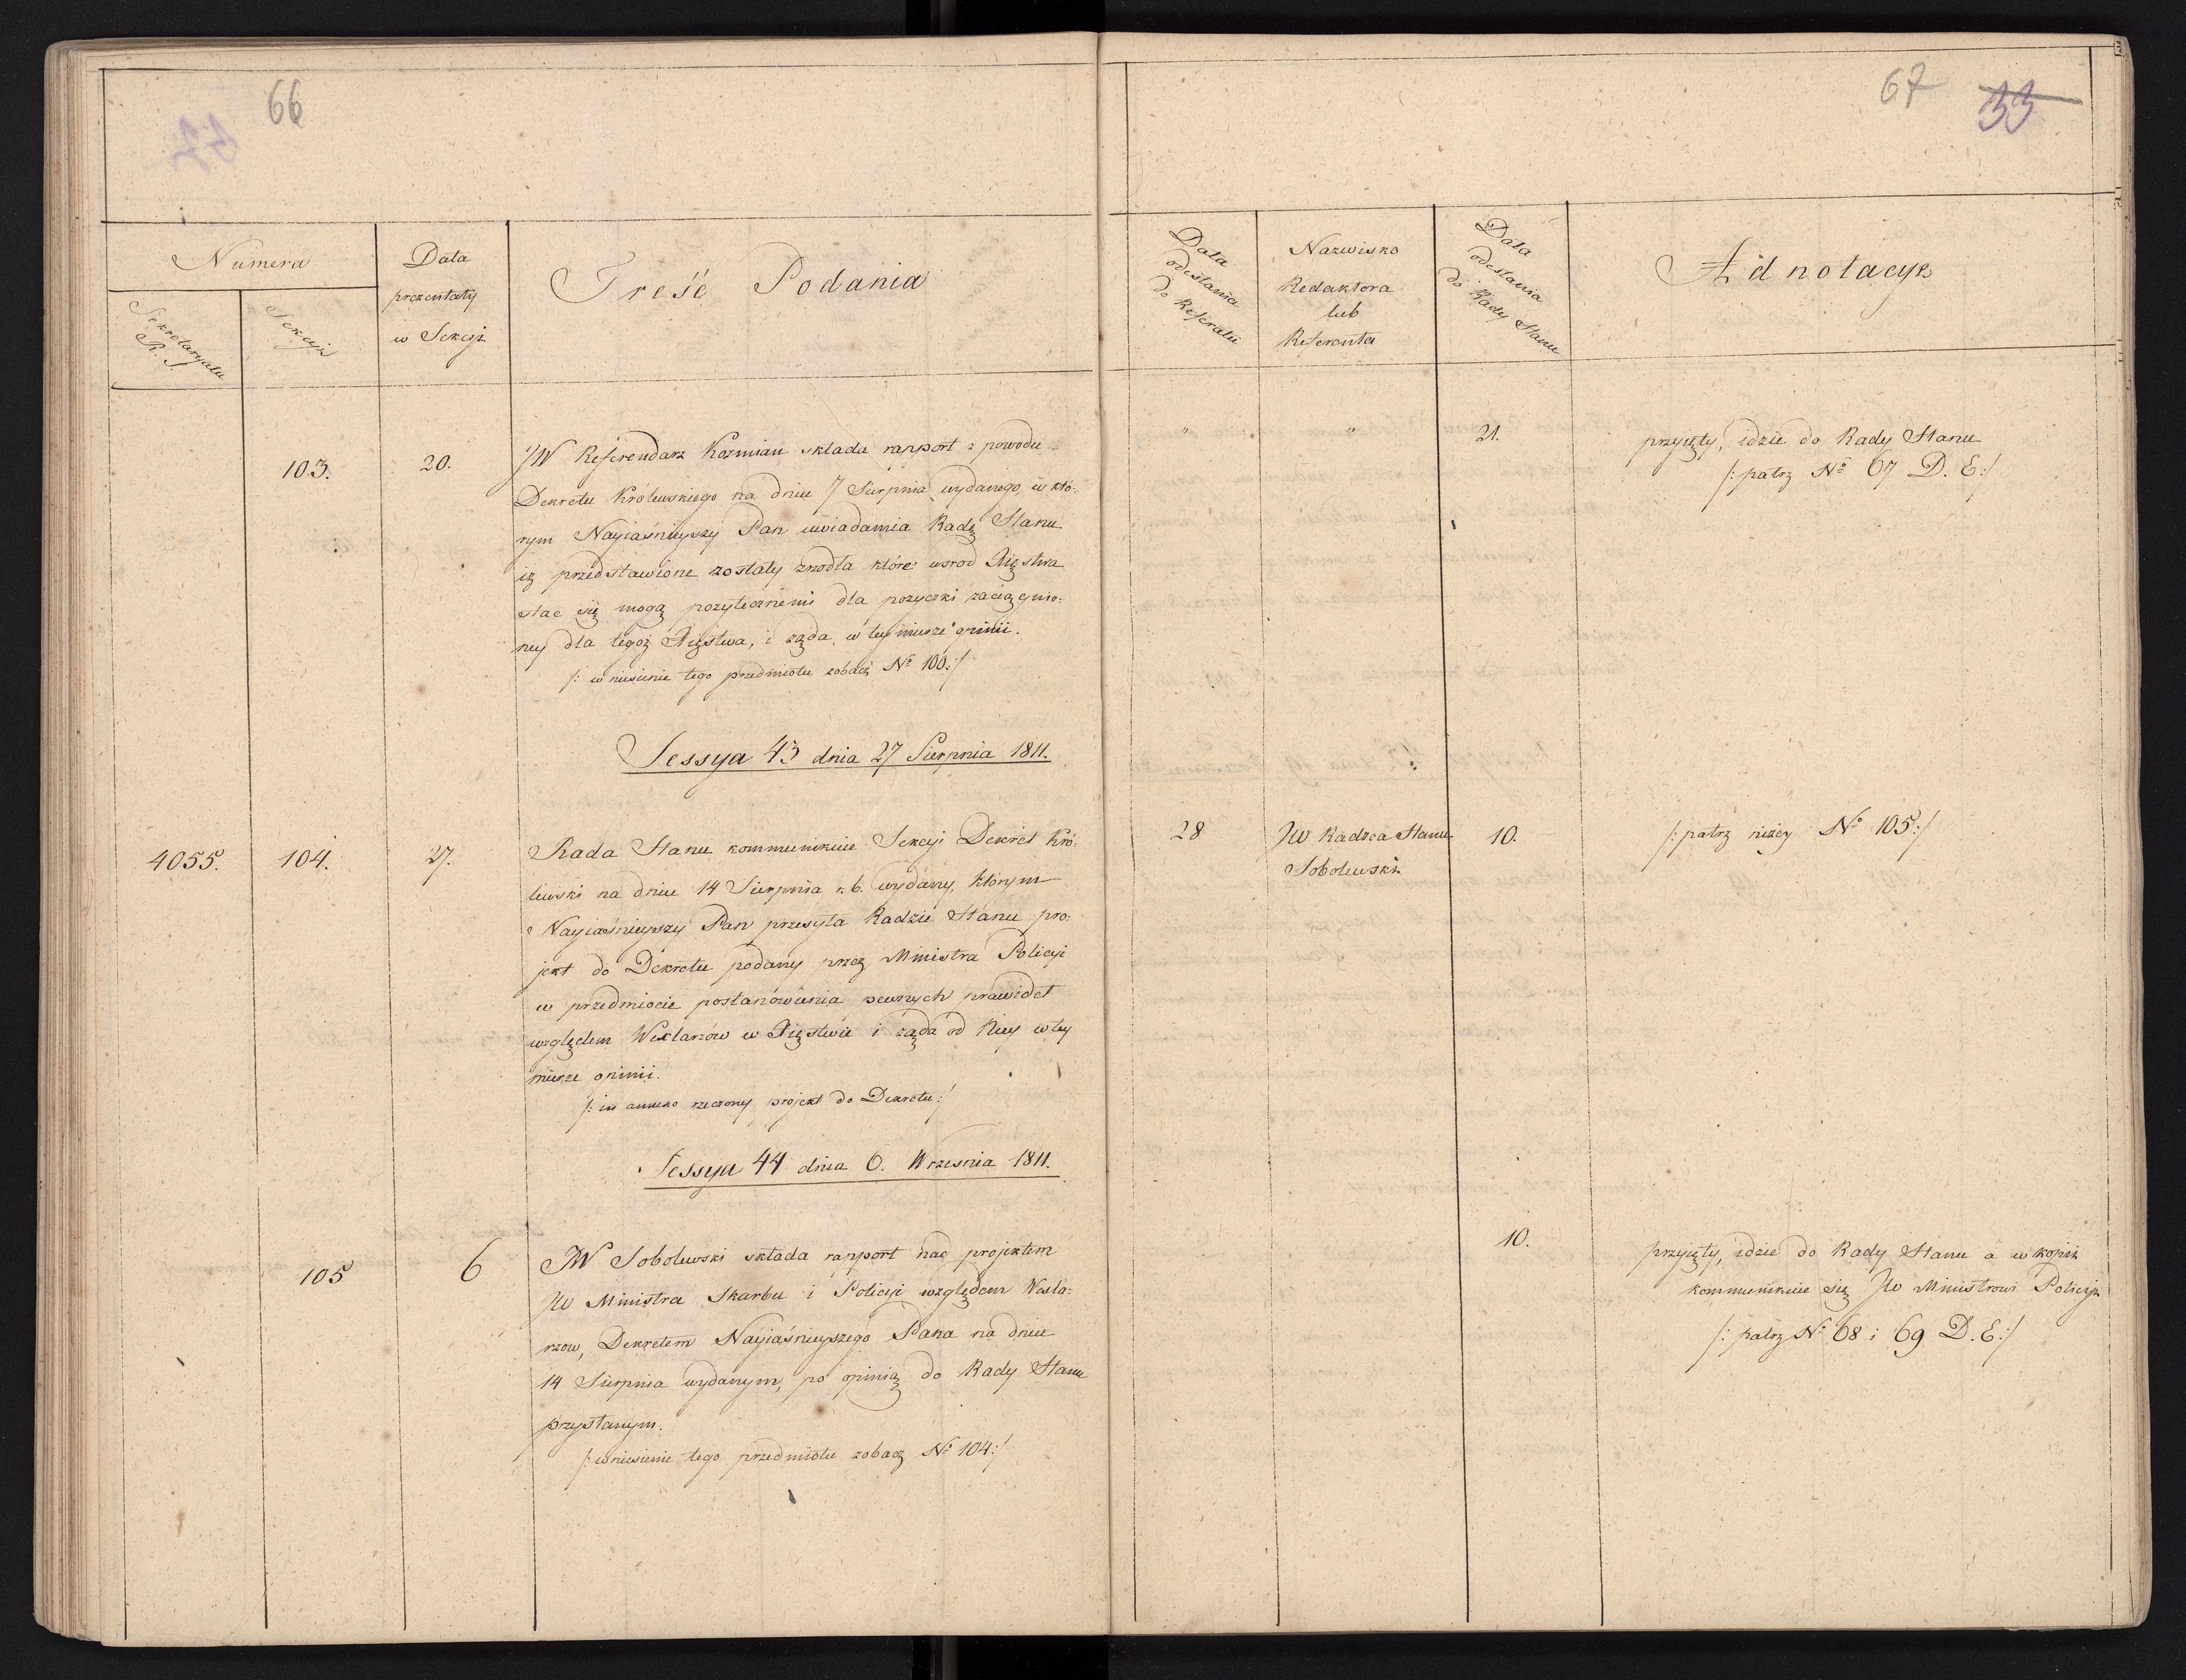 66
67 33
Numera
Sekretaryatu R. S.
Sekcyi
Data
prezentaty
w Sekcyi
Treść Podania
Data
odesłania
do Referatu
Nazwisko
Redaktora
lub
Referenta
Data
odesłania
do Rady Stanu
Adnotacye
103. 20. JW Referendarz Kozmian składa rapport z powodu
Dekretu Królewskiego na dniu 7 Sierpnia wydanego, w któ-
rym Nayiaśnieyszy Pan uwiadamia Radę Stanu
iż przedstawione zostały zrodła które wsrod Xięstwa
stac się mogą pozytecznemi dla pozyczki zaciągnio-
ney dla tegoż Xięstwa, i ząda w tey mierze opinii.
/: wniesienie tego przedmiotu zobacz No 100:/
" " 21. przyięty, idzie do Rady Stanu
/: patrz No 67 D. E:/
Sessya 43 dnia 27 Sierpnia 1811.
4055. 104. 27. Rada Stanu kommunikuie Sekcyi Dekret Kró-
lewski na dniu 14 Sierpnia r. b. wydany, którym
Nayiaśnieyszy Pan przesyła Radzie Stanu pro-
jekt do Dekretu podany przez Ministra Policyi
w przedmiocie postanowienia pewnych prawideł
względem Wexlarzów w Xięstwie i ząda od Niey w tey
mierze opinii.
/: in annexo rzeczony projekt do Dekretu:/
28 JW Radzca Stanu
Sobolewski
10. /: patrz niżey No 105:/
Sessya 44 dnia 6. Wrzesnia 1811.
105 6 JW Sobolewski składa rapport nad projektem
JW Ministra Skarbu i Policyi względem Wexla-
rzow, Dekretem Nayiaśnieyszego Pana na dniu
14 Sierpnia wydanym, po opinią do Rady Stanu
przysłanym.
/: wniesienie tego przedmiotu zobacz No 104:/
10. przyięty, idzie do Rady Stanu a w kopii
kommunikuie się JW Ministrowi Policyi
/: patrz No 68 i 69 D. E:/